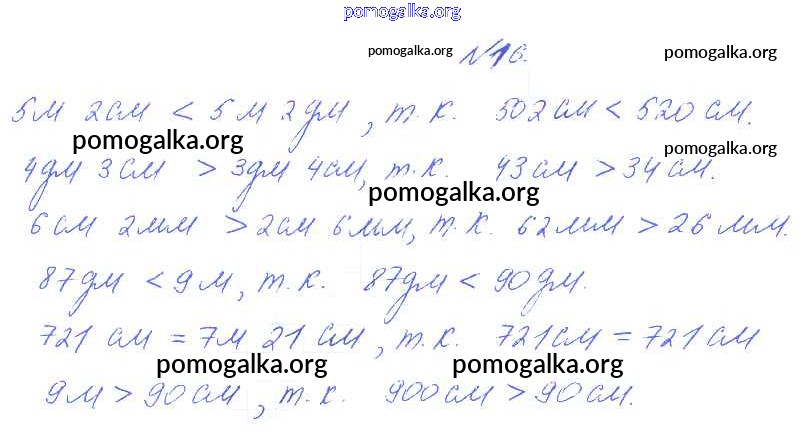 pomogalka.org
pomogalka.org №16. pomogalka.org
5м 2см < 5м 2дм, т.к. 502см < 520см.
pomogalka.org pomogalka.org
4дм 3см > 3дм 4см, т.к. 43см > 34см.
pomogalka.org
6см 2мм > 2см 6мм, т.к. 62мм > 26мм.
87дм < 9м, т.к. 87дм < 90дм.
721 см = 7м 21 см, т.к. 721см = 721см
pomogalka.org pomogalka.org
9м > 90см, т.к. 900см > 90см.